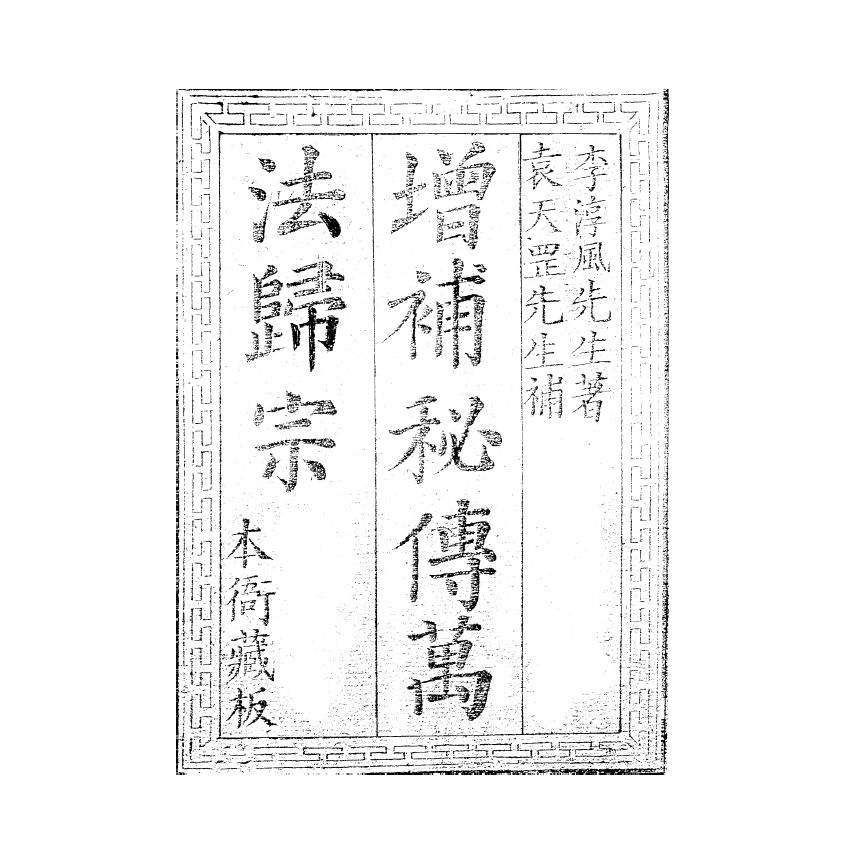 李淳風先生著
袁天罡先生補
增補秘傳萬
法歸宗
本衙藏板